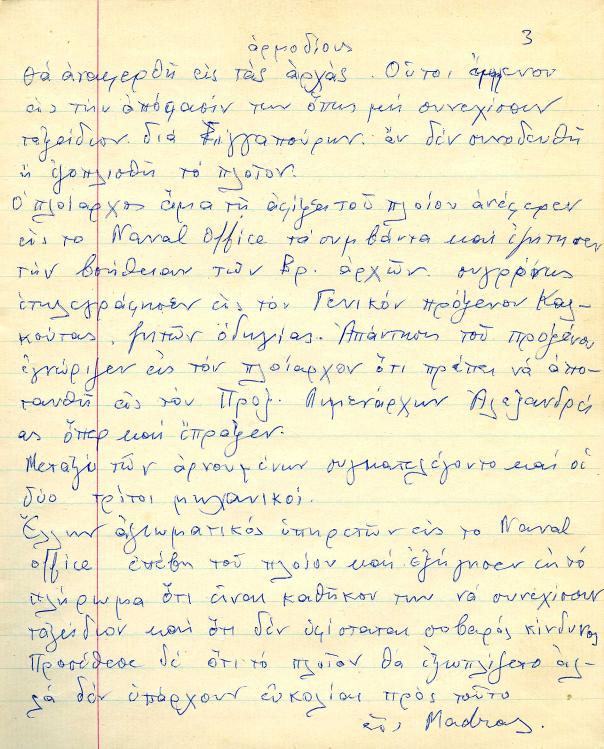 3
ἁρμοδίους
θά ἀναφερθῆ εἰς τάς ἀρχάς. Οὗτοι ἔμμενον
εἰς τήν ἀπόφασίν των ὅπως μή συνεχίσουν
ταξείδιον διά Σιγγαπούρην ἄν δέν συνοδευθῆ
ἤ ἐξοπλισθῆ τό πλοῖον.
Ὁ πλοίαρχος ἅμα τῆ ἀφίξει τοῦ πλοίου ἀνέφερεν
εἰς το Naval Office τά συμβάντα καί ἐζήτησεν
τήν βοήθειαν τῶν Βρ. ἀρχῶν. συγχρόνως
ἐτηλεγράφησεν εἰς τόν Γενικόν πρόξενον Καλ-
κούτας, ζητῶν ὁδηγίας. Ἀπάντησις τοῦ προξένου
ἐγνώριζεν εἰς τόν πλοίαρχον ὅτι πρέπει νά ἀπο-
τανθῆ εἰς τόν Προξ. Λιμενάρχην Ἀλεξανδρεί
ας ὅπερ καί ἔπραξεν.
Μεταξύ τῶν ἀρνουμένων συγκατελέγοντο καί οἱ
δύο τρίτοι μηχανικοί.
Ἕλλην ἀξιωματικός ὑπηρετῶν εἰς το Naval
office ἐπέβη τοῦ πλοίου καί ἐξήγησεν εἰς τό
πλήρωμα ὅτι εἶναι καθῆκον των νά συνεχίσουν
ταξείδιον καί ὅτι δέν ὑφίσταται σοβαρός κίνδυνος
Προσέθεσε δέ ὅτι τό πλοῖον θά ἐξωπλίζετο ἀλ-
λά δέν ὑπάρχουν εὐκολίαι πρός τοῦτο
εἰς Madras.